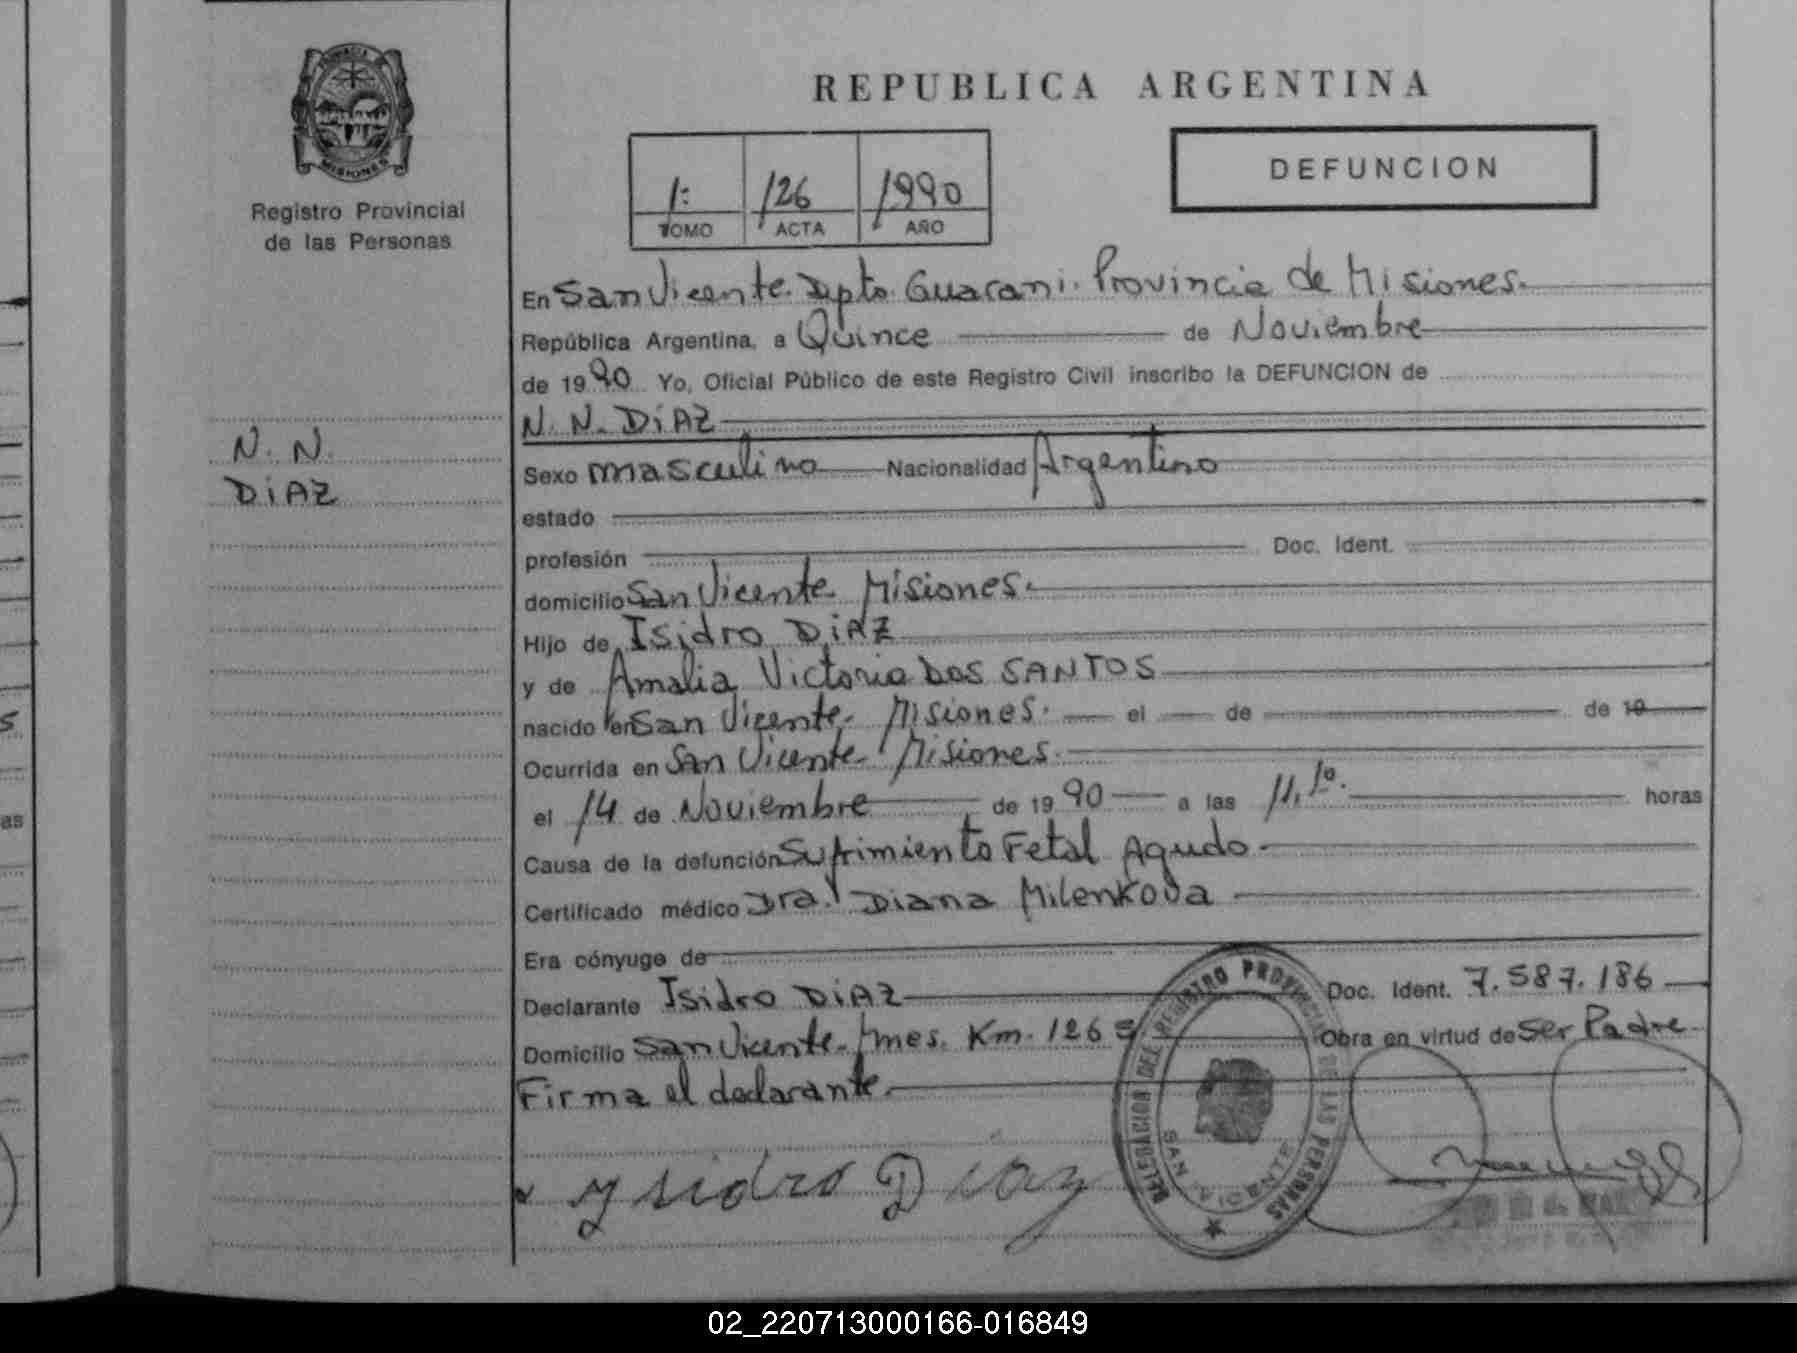 PROVINCIA
MISIONES
Registro Provincial
de las Personas
N. N.
DiAZ
REPUBLICA ARGENTINA
1: 126 1990
TOMO ACTA AÑO
DEFUNCION
En San Vicente. Dpto. Guarani. Provincia de Misiones.
República Argentina, a Quince de Noviembre
de 1990 Yo, Oficial Público de este Registro Civil inscribo la DEFUNCION de
N. N. DiAZ
Sexo masculino Nacionalidad Argentino
estado
profesión Doc. Ident.
domicilio San Vicente. Misiones.
Hijo de Isidro DiAZ
y de Amalia Victoria Dos SANTOS
nacido en San Vicente. Misiones. el de de 19
Ocurrida en San Vicente. Misiones.
el 14 de Noviembre de 1990 a las horas
Causa de la defunción Sufrimiento Fetal Agudo
Certificado médico Dra. Diana Milenkova
Era cónyuge de
Declarante Isidro DiAZ Doc. Ident. 7.587.186
Domicilio San Vicente. Mnes. Km. 126 Obra en virtud de Ser Padre
Firma el declarante.
ysidro Diaz
DELEGACION DEL REGISTRO PROVINCIAL DE LAS PERSONAS
SAN VICENTE
02_220713000166-016849